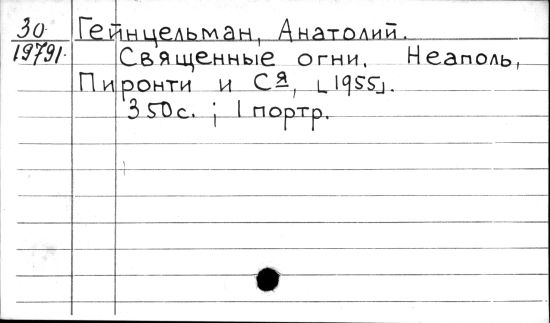 30 Гейнцельман, Анатолий.
19791. Священные огни. Неаполь,
Пиронти и Ся, [1955].
350с. ; 1 портр.